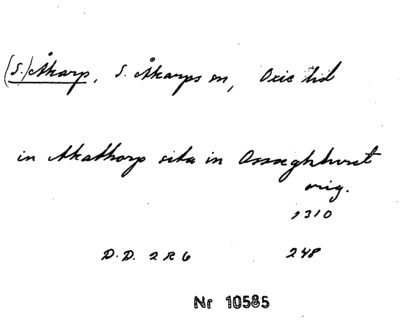 (S.) Åkarp, S. Åkarps sn, Oxie hd
in Akathorp sita in Ossæghhæret
orig.
1310
D.D. 2 R 6 248
Nr 10585